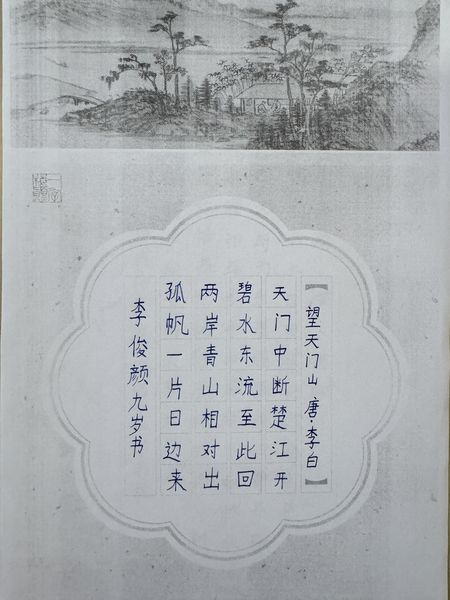 【望天门山 唐·李白】
天门中断楚江开
碧水东流至此回
两岸青山相对出
孤帆一片日边来
李俊颜九岁书